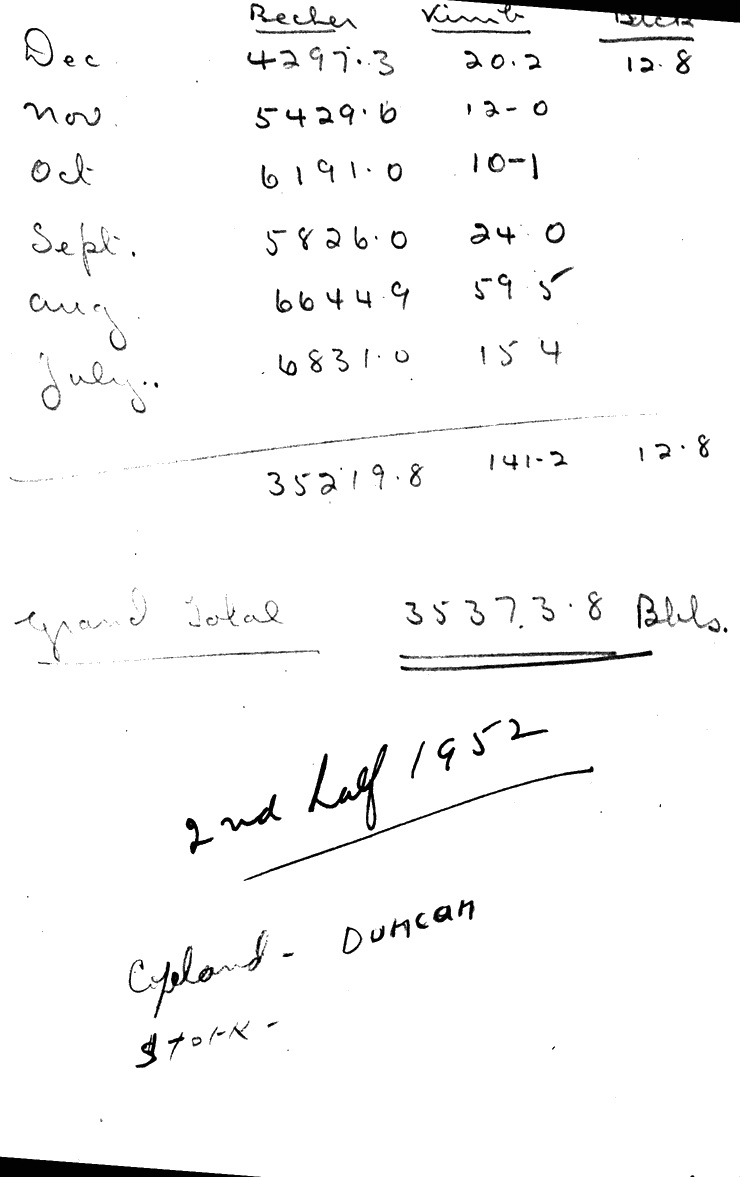 Becher Kimb Beck
Dec 4297.3 20.2 12.8
Nov. 5429.6 12-0
Oct 6191.0 10-1
Sept. 5826.0 24.0
Aug. 6644.9 59 5
July.. 6831.0 15 4
35219.8 141-2 12.8
Grand Total 35373.8 Bbls.
2nd half 1952
Copeland - Duncan
Stork -